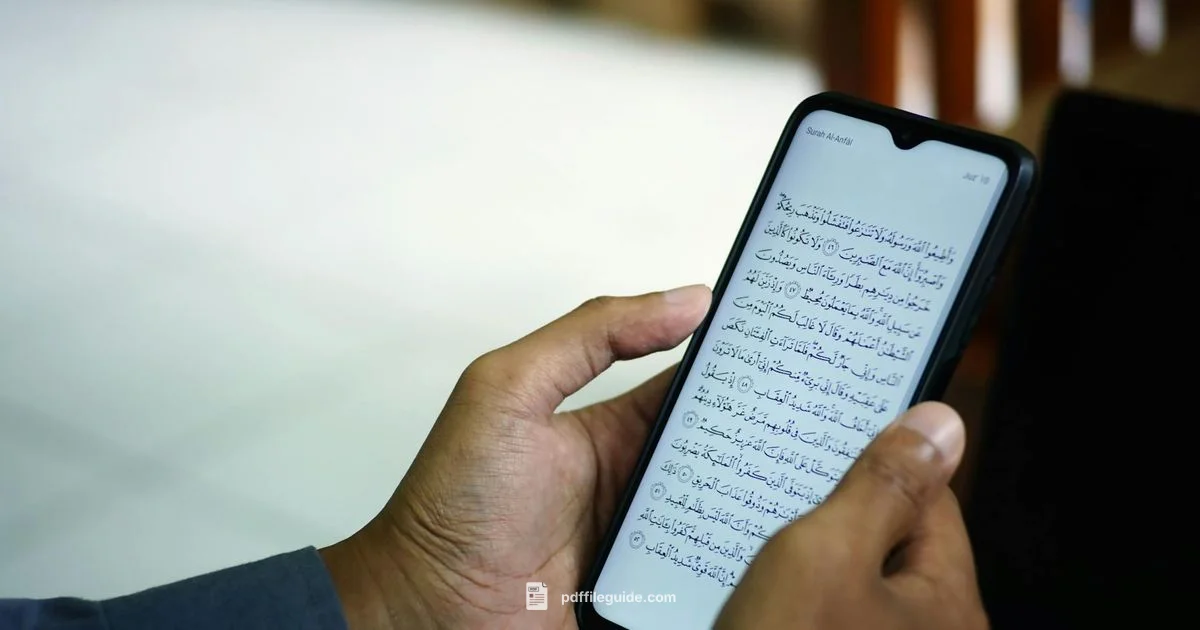 Surah Al-Anfāl
Juz' 10
وَأَطِيعُوا۟ ٱللَّهَ وَرَسُولَهُۥ وَلَا تَنَـٰزَعُوا۟ فَتَفْشَلُوا۟ وَتَذْهَبَ رِيحُكُمْ
وَٱصْبِرُوٓا۟ إِنَّ ٱللَّهَ مَعَ ٱلصَّـٰبِرِينَ ٤٦ وَلَا تَكُونُوا۟ كَٱلَّذِينَ
خَرَجُوا۟ مِن دِيَـٰرِهِم بَطَرًا وَرِئَآءَ ٱلنَّاسِ وَيَصُدُّونَ
عَن سَبِيلِ ٱللَّهِ وَٱللَّهُ بِمَا يَعْمَلُونَ مُحِيطٌ ٤٧ وَإِذْ زَيَّنَ لَهُمُ
ٱلشَّيْطَـٰنُ أَعْمَـٰلَهُمْ وَقَالَ لَا غَالِبَ لَكُمُ ٱلْيَوْمَ مِنَ
ٱلنَّاسِ وَإِنِّى جَارٌ لَّكُمْ فَلَمَّا تَرَآءَتِ ٱلْفِئَتَانِ نَكَصَ
عَلَىٰ عَقِبَيْهِ وَقَالَ إِنِّى بَرِىٓءٌ مِّنكُمْ إِنِّىٓ أَرَىٰ مَا لَا تَرَوْنَ
إِنِّىٓ أَخَافُ ٱللَّهَ وَٱللَّهُ شَدِيدُ ٱلْعِقَابِ ٤٨ إِذْ يَقُولُ
وَٱلَّذِينَ فِى قُلُوبِهِم مَّرَضٌ غَرَّ هَـٰٓؤُلَآءِ دِينُهُمْ
يَتَوَكَّلْ عَلَى ٱللَّهِ فَإِنَّ ٱللَّهَ عَزِيزٌ حَكِيمٌ ٤٩
إِذْ يَتَوَفَّى ٱلَّذِينَ كَفَرُوا۟ ٱلْمَلَـٰٓئِكَةُ يَضْرِبُونَ
وَأَدْبَـٰرَهُمْ وَذُوقُوا۟ عَذَابَ ٱلْحَرِيقِ ٥٠ ذَٰلِكَ
وَأَنَّ ٱللَّهَ لَيْسَ بِظَلَّـٰمٍ لِّلْعَبِيدِ ٥١
وَٱلَّذِينَ مِن قَبْلِهِمْ كَفَرُوا۟ بِـَٔايَـٰتِ ٱللَّهِ
إِنَّ ٱللَّهَ قَوِىٌّ شَدِيدُ ٱلْعِقَابِ ٥٢
pdffileguide.com